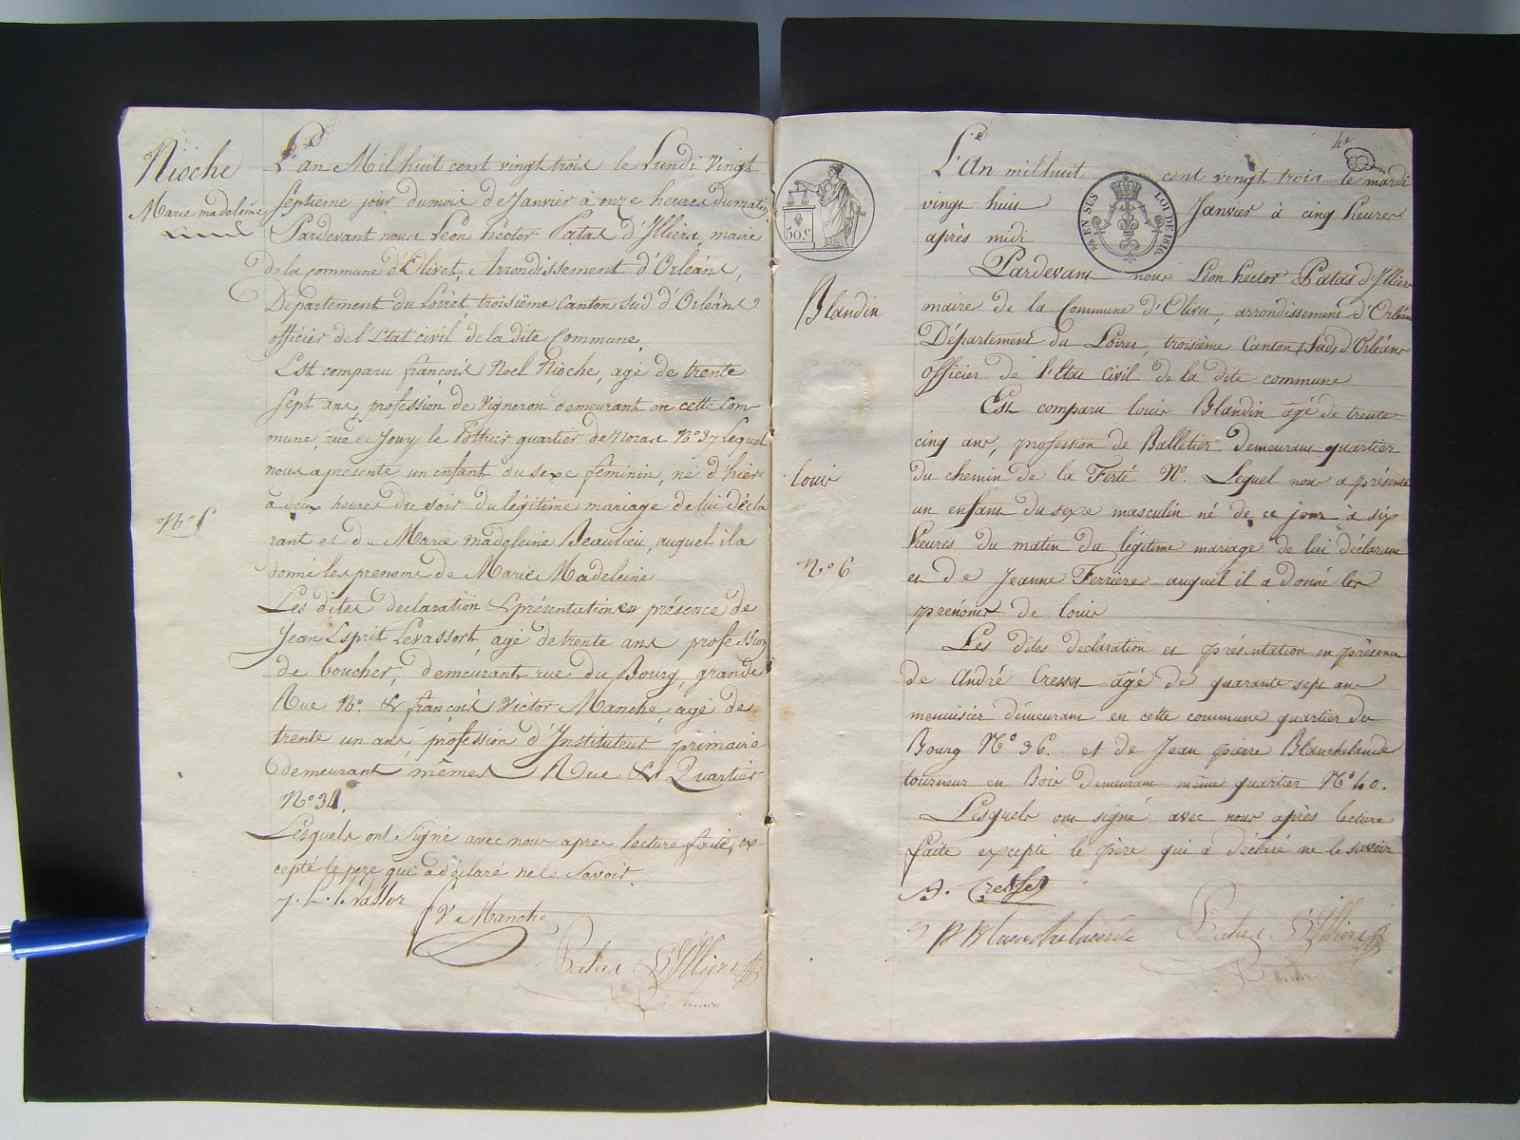 Nioche
Marie madeleine
N.° 5
L'an Mil huit cent vingt trois le Lundi vingt
Septieme jour du mois de Janvier à onze heures du matin
Pardevant nous Léon hector Patas d'Illiers, maire
de la commune d'Olivet, Arrondissement d'Orléans,
Département du Loiret troisième Canton Sud d'Orléans
officier de l'Etat civil de la dite Commune.
Est comparu françois Noel Nioche, agé de trente
sept ans, profession de Vigneron demeurant en cette Com-
mune, rue de Jouy le Pottier quartier de N° 37 Lequel
nous a présenté un enfant du sexe féminin, né d'hier
à heures du soir du légitime mariage de lui décla
rant et de Marie madeleine Beaulieu, auquel il a
donné les prenoms de Marie Madeleine
Les dites déclaration & présentation en présence de
Jean Esprit Levassort, agé de trente ans profession
de boucher, demeurant rue du Bourg, grande
Rue N°. & françois Victor Manche, agé de
trente un ans, profession d'Instituteur primaire
demeurant mêmes Rue & Quartier
N° 31.
Lesquels ont signé avec nous apres lecture faite, ex-
cepté le pere qui a déclaré ne le Savoir.
J. L. levassor
V. Manche
Patas D'Illiers
50.C
EN SUS
LOI DE 1816
Blandin
louis
N.° 6
L'An mil huit cent vingt trois le mardi
vingt huit Janvier à cinq heures
après midi
Pardevant nous Léon hector Patas d'Illiers
maire de la Commune d'Olivet, arrondissement d'Orléans
Département du Loiret, troisième Canton Sud d'Orléans
officier de l'Etat civil de la dite commune
Est comparu louis Blandin âgé de trente
cinq ans, profession de Balletier demeurant quartier
du chemin de la Ferté N°. Lequel nous a présenté
un enfant du sexe masculin né de ce jour à six
heures du matin du légitime mariage de lui déclarant
et de Jeanne Ferrière auquel il a donné les
prénoms de louis
Les dites déclaration et présentation en présence
de André Cresses âgé de quarante sept ans
menuisier demeurant en cette commune quartier du
Bourg N° 36. et de Jean pierre Blanchelande
tourneur en Bois demeurant même quartier N° 40.
Lesquels ont signé avec nous après lecture
faite excepté le père qui a déclaré ne le savoir
A. Cresses
Patas D'Illiers